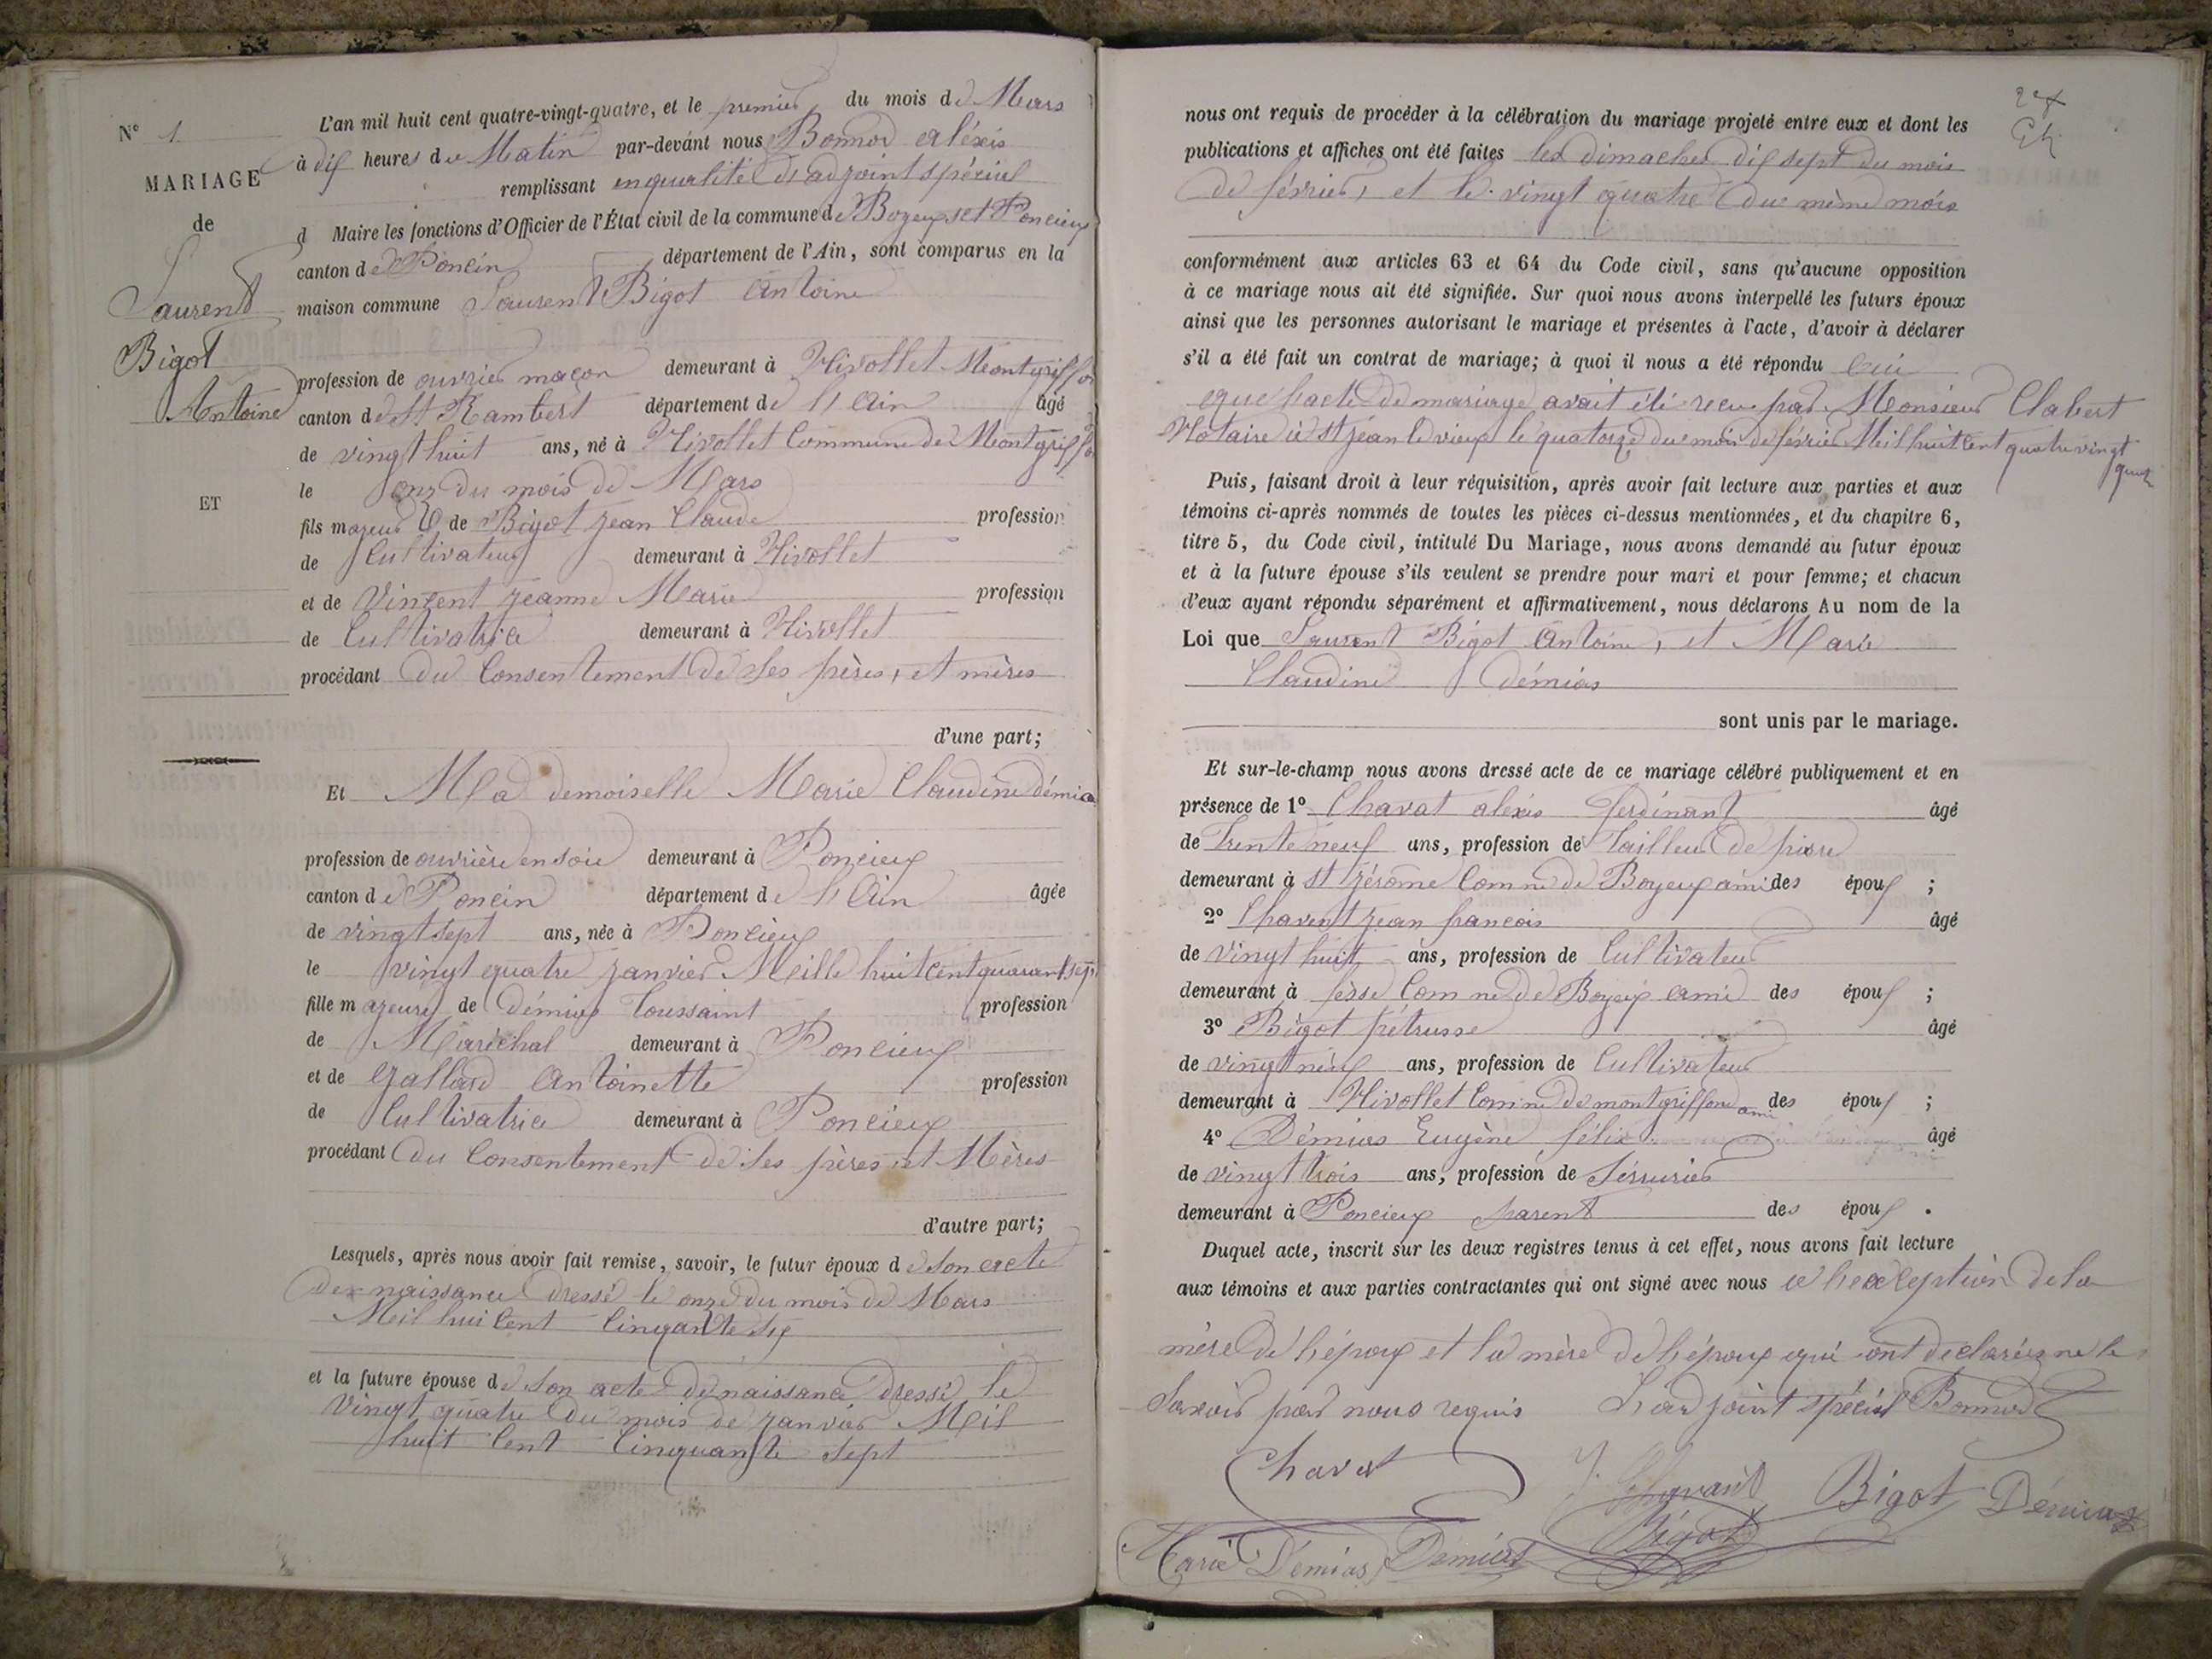 N° 1
MARIAGE
de
Laurent
Bigot
Antoine
ET
L'an mil huit cent quatre-vingt-quatre, et le premier du mois de Mars
à dix heures du Matin par-devant nous Bonnod aléxis
remplissant en qualité d'adjoint spécial
d Maire les fonctions d'Officier de l'État civil de la commune de Boyeux et Poncieux
canton de Poncin département de l'Ain, sont comparus en la
maison commune Laurent Bigot Antoine
profession de ouvrier maçon demeurant à Nivollet Montgriffon
canton de St Rambert département de l'Ain âgé
de vingt huit ans, né à Nivollet Commune de Montgriffon
le onz du mois de Mars
fils majeur de Bigot jean Claude profession
de Cultivateur demeurant à Nivollet
et de Vincent jeanne Marie profession
de Cultivatrice demeurant à Nivollet
procédant du Consentement de Ses pères, et mères
d'une part;
Et Ma demoiselle Marie Claudine démias
profession de ouvrière en soie demeurant à Poncieux
canton de Poncin département de l'Ain âgée
de vingt sept ans, née à Poncieux
le vingt quatre janvier Mille huit cent quarant sept
fille majeure de démias Toussaint profession
de Maréchal demeurant à Poncieux
et de Gallard Antoinette profession
de Cultivatrice demeurant à Poncieux
procédant du Consentement de Ses pères et Mères
d'autre part;
Lesquels, après nous avoir fait remise, savoir, le futur époux de son acte
de naissance dressé le onze du mois de Mars
Mil hui Cent Cinquante six
et la future épouse de son acte de naissance dressé le
Vingt quatre du mois de janvier Mil
huit Cent Cinquante sept
nous ont requis de procéder à la célébration du mariage projeté entre eux et dont les
publications et affiches ont été faites les dimaches dix sept du mois
de février, et le vingt quatre du même mois
conformément aux articles 63 et 64 du Code civil, sans qu'aucune opposition
à ce mariage nous ait été signifiée. Sur quoi nous avons interpellé les futurs époux
ainsi que les personnes autorisant le mariage et présentes à l'acte, d'avoir à déclarer
s'il a été fait un contrat de mariage; à quoi il nous a été répondu oui
que l'acte de mariage avait été reçu par Monsieur Clabert
Notaire à st jean le vieux le quatorze du mois de février Mil huit Cent quatre vingt
quatr
Puis, faisant droit à leur réquisition, après avoir fait lecture aux parties et aux
témoins ci-après nommés de toutes les pièces ci-dessus mentionnées, et du chapitre 6,
titre 5, du Code civil, intitulé Du Mariage, nous avons demandé au futur époux
et à la future épouse s'ils veulent se prendre pour mari et pour femme; et chacun
d'eux ayant répondu séparément et affirmativement, nous déclarons Au nom de la
Loi que Laurent Bigot Antoine, et Marie
Claudine démias
sont unis par le mariage.
Et sur-le-champ nous avons dressé acte de ce mariage célébré publiquement et en
présence de 1° Chavat alexis ferdinant âgé
de Trente neuf ans, profession de Tailleur de pierre
demeurant à st jérôme Com ne de Boyeux ami des époux ;
2° Chavent jean francois âgé
de vingt huit ans, profession de Cultivateur
demeurant à Com ne de Boyeux ami des époux ;
3° Bigot pétrusse âgé
de vingt neuf ans, profession de Cultivateur
demeurant à Nivollet Com ne de montgriffond ami des époux ;
4° Démias Eugène félix âgé
de vingt trois ans, profession de Sérrurier
demeurant à Poncieux parent des époux .
Duquel acte, inscrit sur les deux registres tenus à cet effet, nous avons fait lecture
aux témoins et aux parties contractantes qui ont signé avec nous a l'exception de la
mère de l'époux et la mère de l'époux qui ont declarées ne le
Savoir par nous requis L'adjoint spécial Bonnod
Chavat Bigot Démias
Bigot
Marie Démias Démias